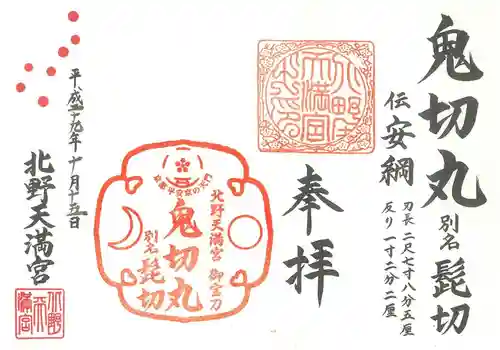 鬼切丸 別名 髭切
伝 安綱
刃長 二尺七寸八分五厘
反り 一寸二分二厘
奉拝
北野天満宮 御宝刀
鬼切丸
別名 髭切
平成二十九年 十月十五日
北野天満宮